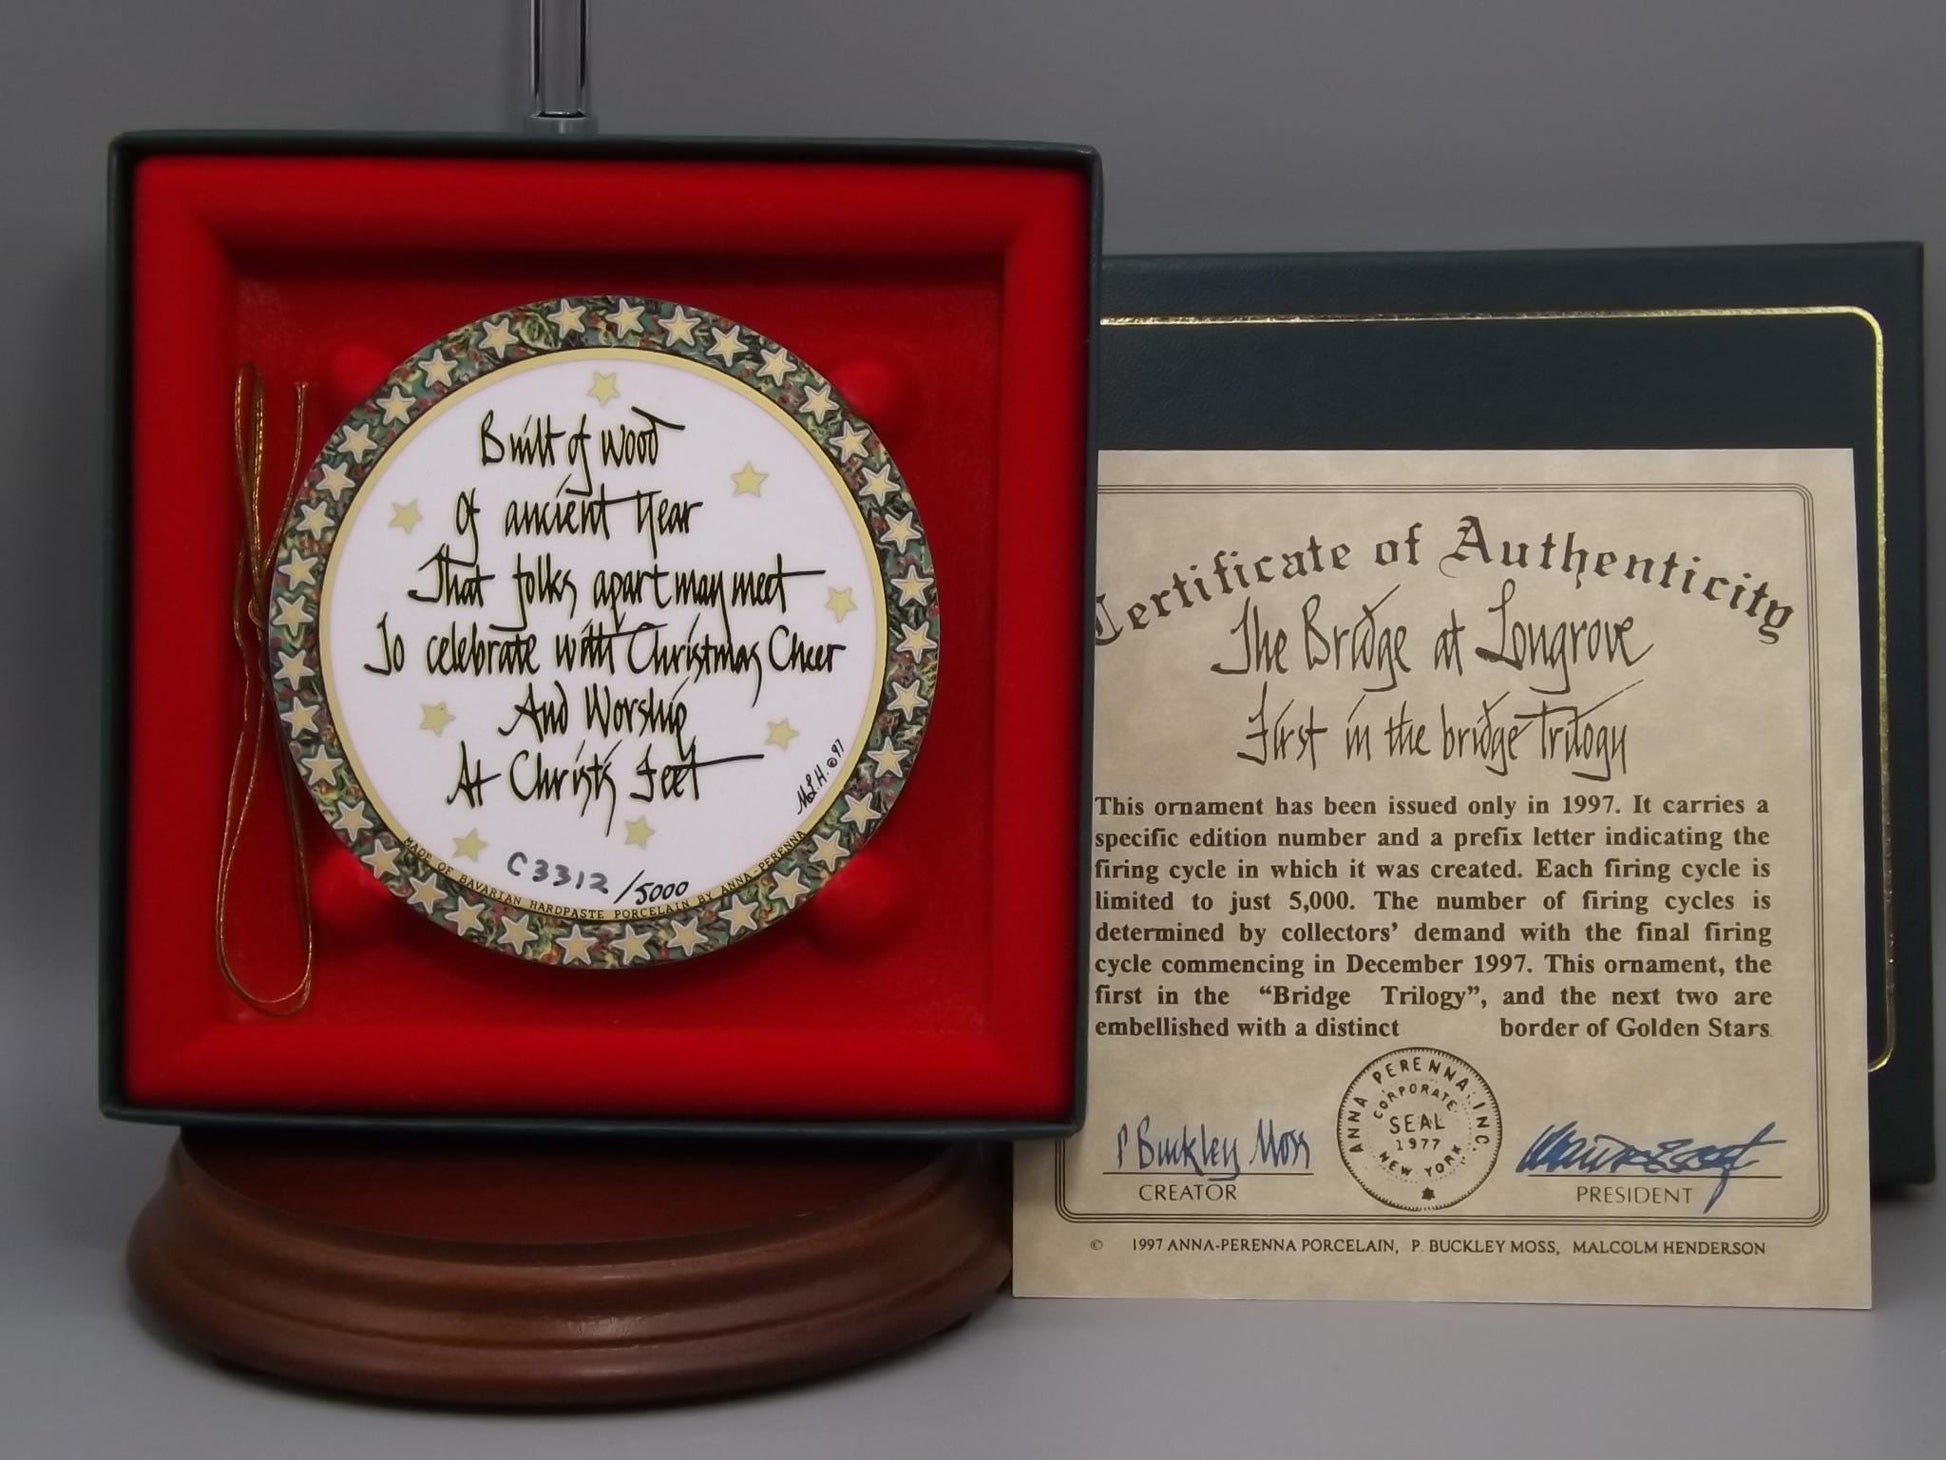 Built of wood
Of ancient year
That folks apart may meet
To celebrate with Christmas Cheer
And Worship
At Christ's Feet
M.L.H. © 97
C3312/5000
MADE OF BAVARIAN HARDPASTE PORCELAIN BY ANNA-PERENNA
Certificate of Authenticity
The Bridge at Longrove
First in the bridge trilogy
This ornament has been issued only in 1997. It carries a
specific edition number and a prefix letter indicating the
firing cycle in which it was created. Each firing cycle is
limited to just 5,000. The number of firing cycles is
determined by collectors' demand with the final firing
cycle commencing in December 1997. This ornament, the
first in the "Bridge Trilogy", and the next two are
embellished with a distinct border of Golden Stars.
P Buckley Moss
CREATOR
ANNA PERENNA, INC.
CORPORATE
SEAL
1977
NEW YORK
PRESIDENT
© 1997 ANNA-PERENNA PORCELAIN, P. BUCKLEY MOSS, MALCOLM HENDERSON